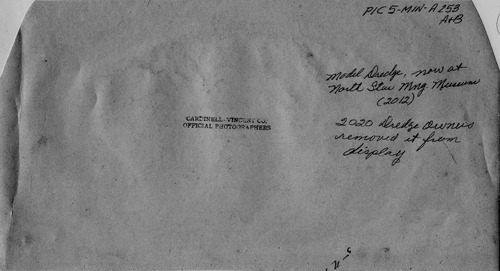 PIC 5-MIN-A 253
A+B
Model Dredge, now at
North Star Mng. Museum
(2012)
CARDINELL-VINCENT CO.
OFFICIAL PHOTOGRAPHERS
2020 Dredge Owners
removed it from
display